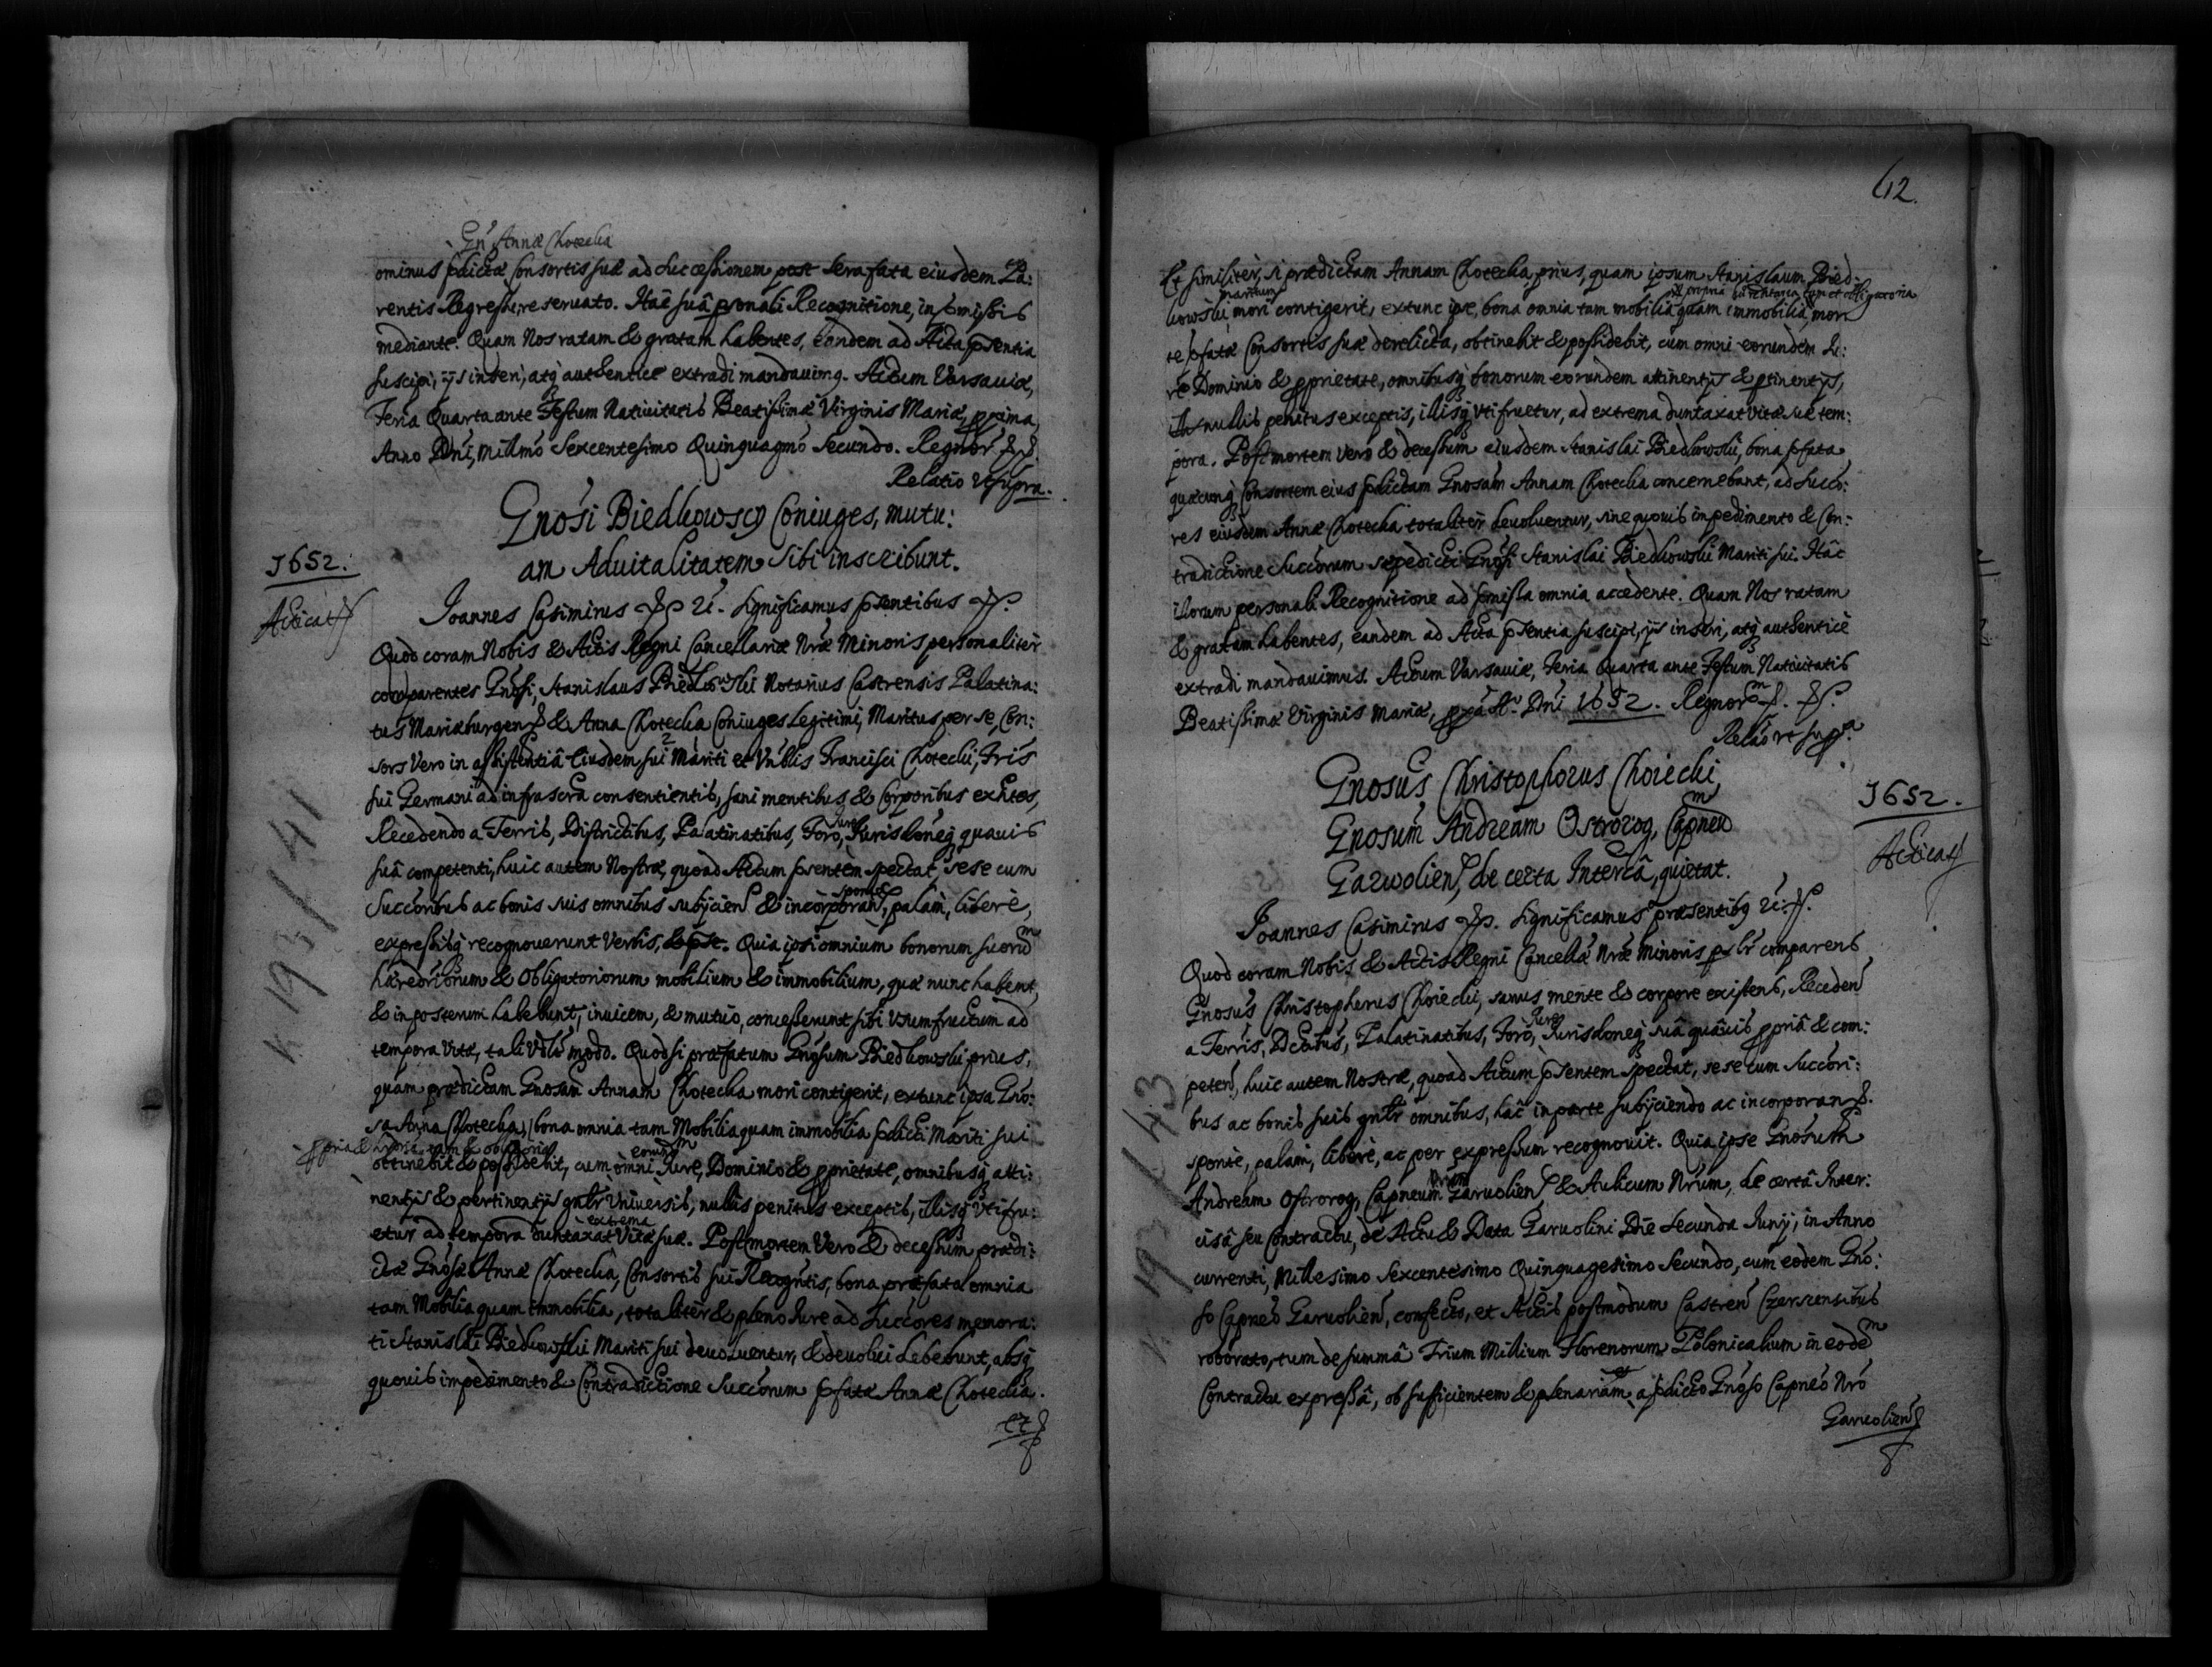 Gn Annæ Chotecka
ominus pdictæ Consortis suæ ad Successionem post sera fata eiusdem Pa:
rentis Regressu, reseruato. Hac suâ psonali Recognitione, in pmissis
mediante. Quam Nos ratam & gratam habentes, eandem ad Acta psentia
suscipi, ijs inseri, atq authentice extradi mandauimq. Actum Varsauiæ,
Feria Quarta ante Festum Natiuitatis Beatissimæ Virginis Mariæ, pxima
Anno Dni, Millmo Sexcentesimo Quinquagmo Secundo. Regnor
Relatio Vt supra.
Gnosi Biedkowscy Coniuges, mutu:
am Aduitalitatem sibi inscribunt.
1652.
Acticat
Joannes Casimirus Significamus psentibus
Quod coram Nobis & Actis Regni Cancellariæ Nræ Minoris personaliter
comparentes Gnosi, Stanislaus Biedkowski Notarius Castrensis Palatina:
tus Mariæburgen & Anna Chotecka Coniuges legitimi, Maritus per se, Con:
sors Vero in assistentiâ Eiusdem sui Mariti et Vrblis Francisci Chotecki, Fris
sui Germani ad infrascra consentientis, sani mentibus & Corporibus exntes,
Recedendo a Terris, Districtibus, Palatinatibus, Foro, Jure Jurisdoneq quauis
suâ competenti, huic autem Nostræ, quoad Actum psentem spectat, sese cum
Succoribus ac bonis suis omnibus subijcien & incorporan, sponte palam, liberè,
expressisq recognouerunt Verbis, Quia ipsi omnium bonorum suoru
hæreditoriorum & Obligatoriorum mobilium & immobilium, quæ nunc habent,
& in posterum habebunt, inuicem, & mutuo, concesserunt sibi vsumfructum ad
tempora Vitæ, tali modo. Quod si præfatum Gnosum Biedkowski prius,
quam prædictam Gnosam Annam Chotecka mori contigerit, extunc ipsa Gno:
sa Anna Chotecka, bona omnia tam Mobilia quam immobilia pdicti Mariti sui
ppria &
obtinebit & possidebit, cum omni eorund Jure, Dominio & pprietate, omnibusq atti:
nentijs & pertinentijs gnlr Vniuersis, nullis penitus exceptis, illisq vtifru:
etur ad extrema tempora duntaxat Vitæ suæ. Post mortem Vero & decessum prædi:
ctæ Gnosæ Annæ Chotecka, Consortis sui Recogntis, bona præfata omnia
tam Mobilia quam immobilia, totaliter & pleno Jure ad Succores memora:
ti Stanislai Biedkowski Mariti sui deuoluentur, & deuolui debebunt, absq
quouis impedimento & Contradictione Succorum pfatæ Annæ Chotecka.
Et
612.
Et similiter, si prædictam Annam Chotecka prius, quam ipsum Stanislaum Bied:
kowski, maritum mori contigerit, extunc ipse, bona omnia tam mobilia quam immobilia, mor
te pfatæ Consortis suæ derelicta, obtinebit & possidebit, cum omni eorundem Ju:
re Dominio & pprietate, omnibusq bonorum eorundem attinentijs & ptinentijs,
nullis penitus exceptis, illisq vtifruetur, ad extrema duntaxat vitæ suæ tem:
pora. Post mortem vero & decessum eiusdem Stanislai Biedkowski, bona pfata
quæcunq Consortem eius pdictam Gnosam Annam Chotecka concernebant, ad Succo:
res eiusdem Annæ Chotecka totaliter deuoluentur, sine quouis impedimento & Con:
tradictione Succorum sæpedicti Gnosi Stanislai Biedkowski Mariti sui. Hâc
ilorum personali Recognitione ad pmissa omnia accedente. Quam Nos ratam
& gratam habentes, eandem ad Acta psentia suscipi, ijs inseri, atq authenticè
extradi mandauimus. Actum Varsauiæ, Feria Quarta ante Festum Natiuitatis
Beatissimæ Virginis Mariæ, pxa Ao. Dni 1652. Regnor
Relao vt supra
Gnosus Christophorus Choiecki,
Gnosum Andream Ostrorog, Capneu
Garwolien, de certa Intercâ, quietat.
1652.
Acticat
Joannes Casimirus Significamus præsentibq
Quod coram Nobis & Actis Regni Cancellæ Nræ Minoris plr comparens
Gnosus Christopherus Choiecki, sanus mente & corpore existens, Receden
a Terris, Dctibus, Palatinatibus, Foro, Jure Jurisdoneq suâ quâuis ppriâ & com:
peten, huic autem Nostræ, quoad Actum psentem spectat, sese cum Succori:
bus ac bonis suis gnlr omnibus, hâc in parte subijciendo ac incorporan.
sponte, palam, liberè, ac per expressum recognouit. Quia ipse Gnosum
Andream Ostrorog, Capneum Nrum Garuolien & Aulicum Nrum, de certâ Inter:
cisâ seu Contractu, de Actu & Data Garuolini Die Secunda Junij, in Anno
currenti, Millesimo Sexcentesimo Quinquagesimo Secundo, cum eodem Gno:
so Capneo Garuolien, confecto, et Actis postmodum Castren Czerscensibus
roborato, tum de summâ Trium Millium Florenorum Polonicalium in eode
Contractu expressâ, ob sufficientem & plenariam, a pdicto Gnoso Capneo Nro
Garuolien